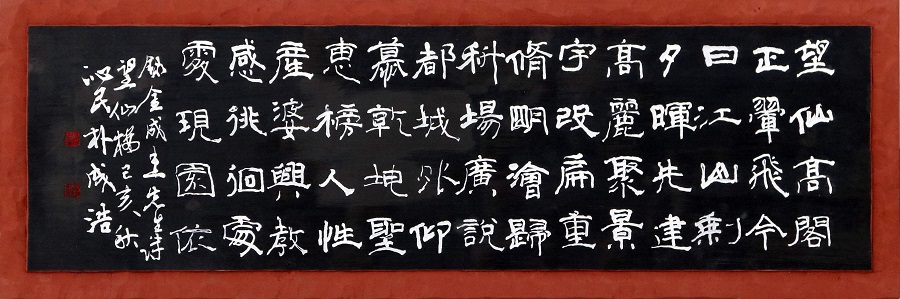 望仙高閣
正翬飛今
曰江山剩
夕暉先建
高麗聚景
宇改扁重
脩明澮歸
科場廣說
都城外仰
慕乾坤聖
惠榜人性
産婆興教
感徘徊處
處現園依
金成圭先生詩
望仙橋己亥秋
民朴成浩